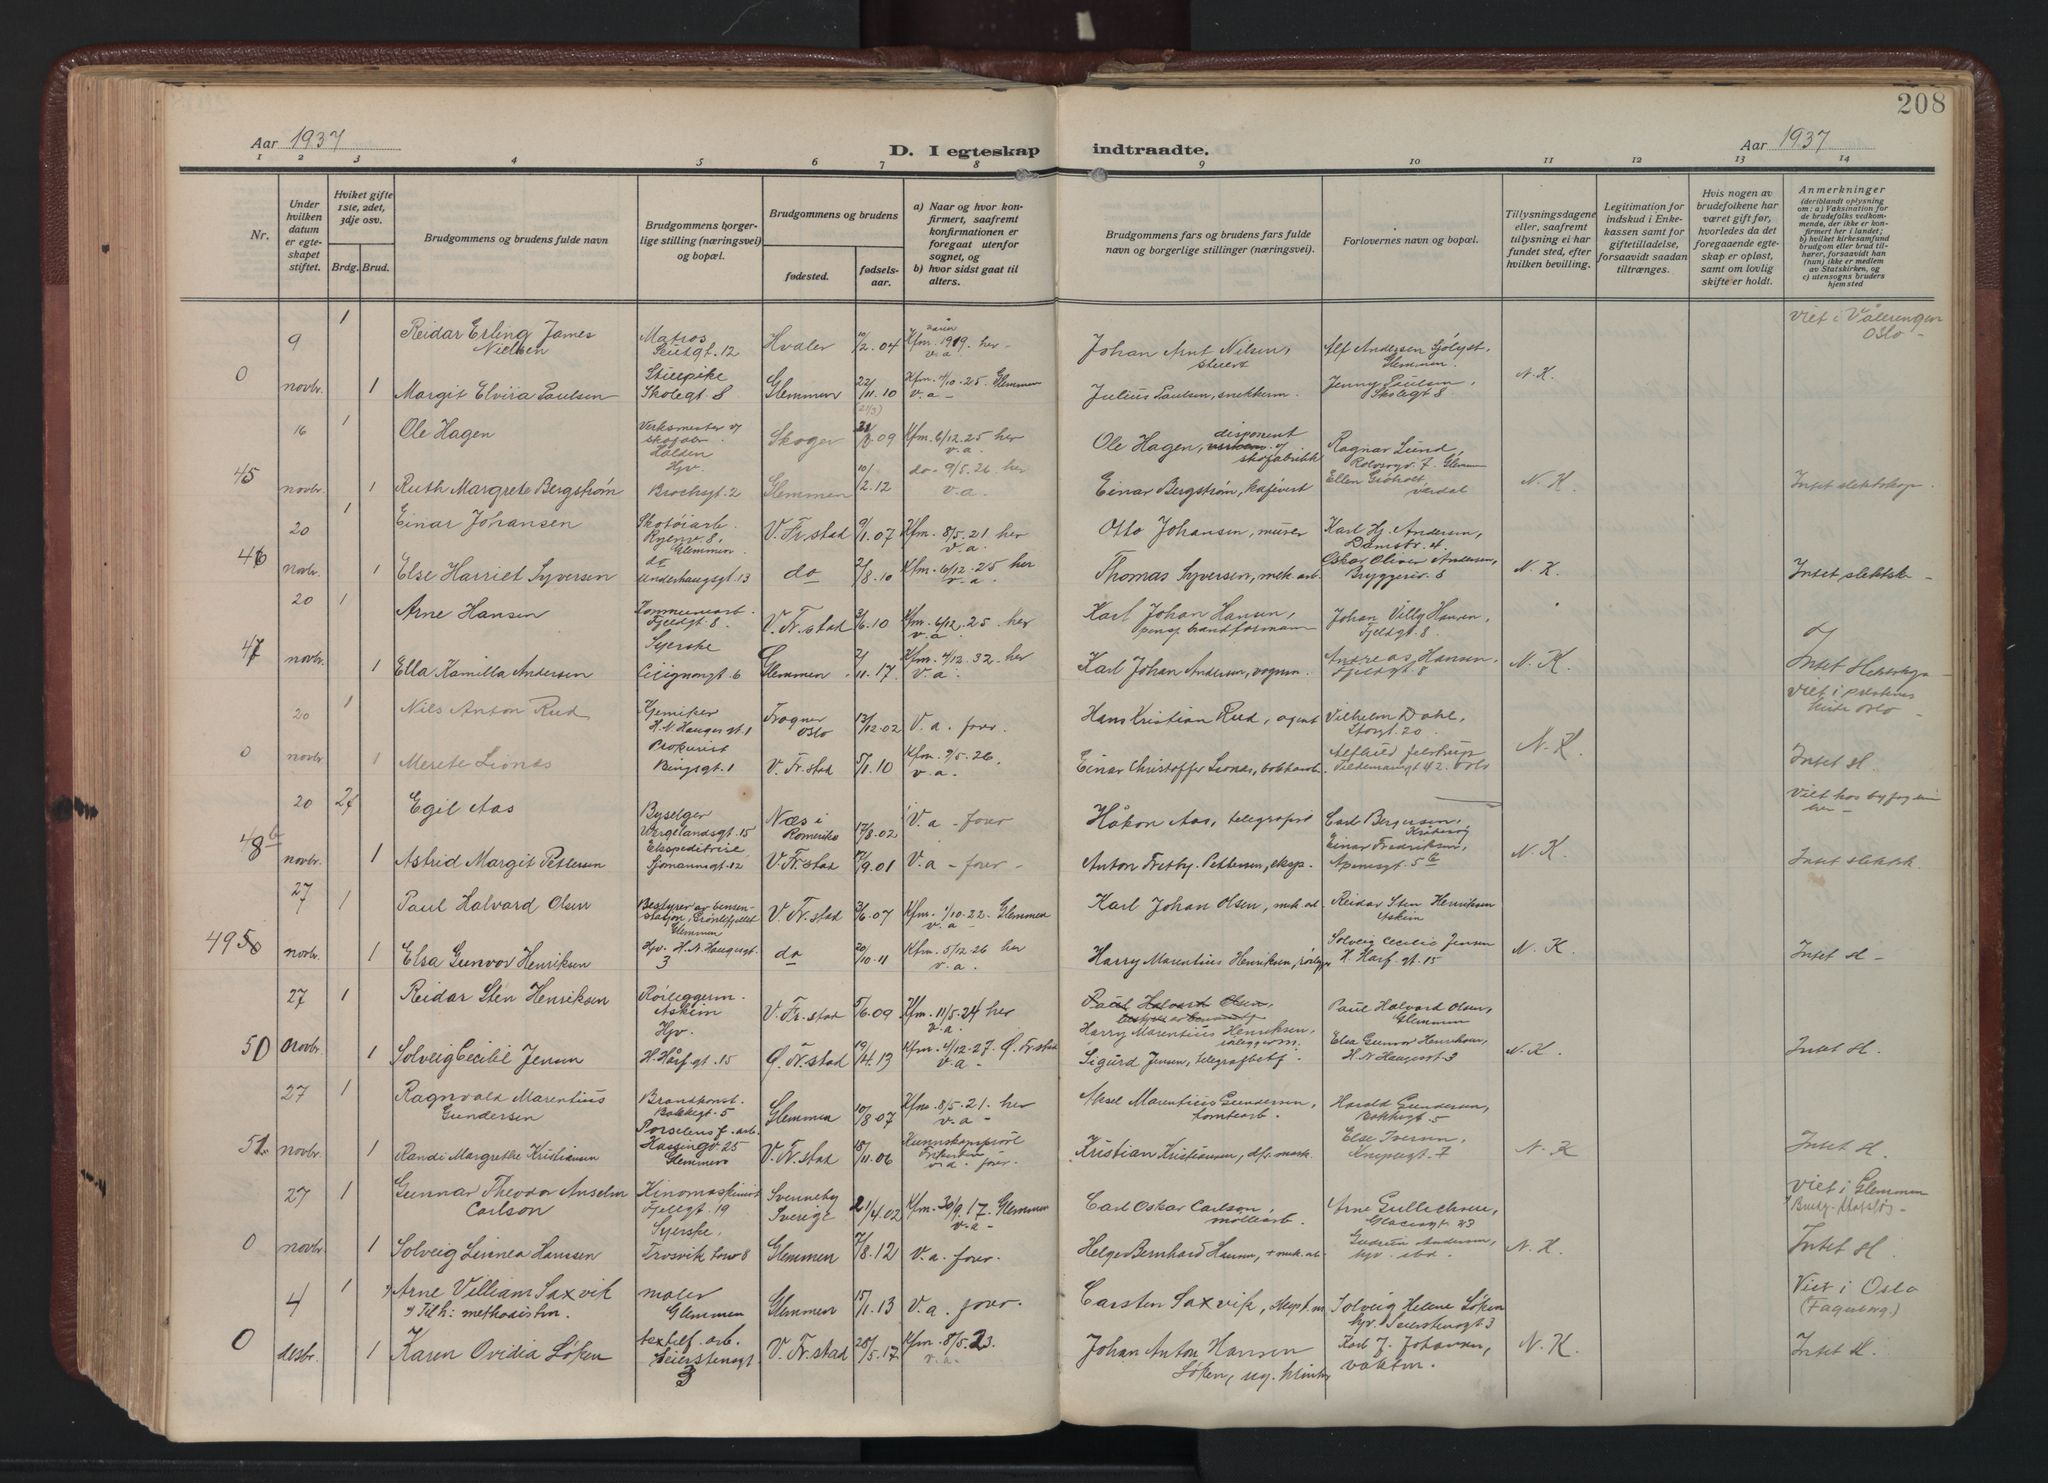 208
Aar 1937
D. I egteskap indtraadte.
Aar 1937
1 2 3 4 5 6 7 8 9 10 11 12 13 14
Nr.
Under hvilken datum er egteskapet stiftet.
Hviket gifte 1ste, 2det, 3dje osv.
Brdg. Brud.
Brudgommens og brudens fulde navn
Brudgommens borgerlige stilling (næringsvei) og bopæl.
Brudgommens og brudens
fødested.
fødselsaar.
a) Naar og hvor konfirmert, saafremt konfirmationen er foregaat utenfor sognet, og
b) hvor sidst gaat til alters.
Brudgommens fars og brudens fars fulde navn og borgerlige stillinger (næringsvei).
Forlovernes navn og bopæl.
Tillysningsdagene eller, saafremt tillysning ei har fundet sted, efter hvilken bevilling.
Legitimation for indskud i Enkekassen samt for giftetilladelse, forsaavidt saadan tiltrænges.
Hvis nogen av brudefolkene har været gift før, hvorledes da det foregaaende egteskap er opløst, samt om lovlig skifte er holdt.
Anmerkninger
(deriblandt oplysning om: a) Vaksination for de brudefolks vedkommende, der ikke er konfirmert her i landet; b) hvilket kirkesamfund brudgom eller brud tilhører, forsaavidt han (hun) ikke er medlem av Statskirken, og c) utensogns bruders hjemsted
9 1 Reidar Erling James Nielsen Matros Hvaler 10/2.04 Kfm. 1919. her v.a. Johan Arnt Nilsen, stuert Alf Andersen Sjølyst, Glemmen viet i Vålerengen Oslo -
0 novbr. 1 Margit Elvira Paulsen Skolegt 8 Glemmen 22/11.10 Kfm. 4/10.25. Glemmen v.a - Julius Paulsen, snekkerm. Jenny Paulsen, Skolegt 8 N.K.
16 1 Ole Hagen Verksmester v/ Halden Skoger 09 Kfm. 6/12.25 her v.a. Ole Hagen, disponent v/ skofabrikk Ragnar Lund, Glemm
45 novbr. 1 Ruth Margrete Bergstrøm Hjv. Brochsgt. 2 Glemmen 10/2.12 do - 9/5.26 her v.a. Einar Bergstrøm, kafévert N.K. Intet slektskap.
20 1 Einar Johansen Skotøiarb. Ryenv. 8, Glemmen V. Fr.stad 9/1.07 Kfm. 8/5.21 her v.a. Otto Johansen, murer Karl Hj. Andersen, Damstr. 4
46 novbr. 1 Else Harriet Syversen do Underhaugsgt. 13 do 2/8.10 Kfm. 6/12.25 her v.a. Thomas Syversen, mek. arb. Oskar Oliver Andersen, Bryggeriv. 8 N.K. Intet slektsk -
20 1 Arne Hansen Kommunearb. Fjeldgt. 8 V. Fr.stad 3/6.10 Kfm. 6/12.25 her v.a. Karl Johan Hansen, Johan Villy Hansen, Fjeldgt. 8.
47 novbr. 1 Ella Kamilla Andersen Syerske Cicignongt. 6 Glemmen 2/11.17 Kfm. 4/12.32. her v.a. Karl Johan Andersen, vognm. Andreas Hansen, Fjeldgt. 8 N.K. Intet slektskap
20 1 Nils Anton Rud Kjemiker H.N. Haugesgt. 1 Frogner Oslo 13/12.02 V.a. forr. Hans Kristian Rud, agent Vilhelm Dahl, Storgt. 20 viet i Oslo
0 novbr. 1 Merete Lionæs Prokurist Bingsgt. 1 V. Fr.stad 5/1.10 Kfm. 9/5.26. v.a - Einar Christoffer Lionæs, Tidemansgt 42. Oslo N.K. Intet sl.
20 2t Egil Aas Byselger Wergelandsgt. 15 Næs i Romerike 17/8.02 V.a - forr Håkon Aas, telegrafist Carl Bergersen, Viet hos byfogden her -
48b novbr. 1 Astrid Margit Pettersen Ekspeditrise Sjømannsgt. 12 V. Fr.stad 9.01 V.a - forr - Anton Fretby Pettersen, eksp. Einar Fredriksen, Apenesgt. 5 b N.K. Intet slektsk
27 1 Paul Halvard Olsen Bestyrer av bensenstasjon, Grønlifjellet Glemmen V. Fr.stad 3/6.07 Kfm. 1/10.22. Glemmen v.a - Karl Johan Olsen, mek. arb Reidar Sten Henriksen Askim
49 novbr. 1 Elsa Gunvor Henriksen Hjv. H.N. Haugesgt. 3 do 20/10.11 Kfm. 5/12.26 her v.a. Harry Marentius Henriksen, Solveig Cecilie Jensen H. Hårf. gt. 15 N.K. Intet sl -
27 1 Reidar Sten Henriksen Rørleggerm. Askim V. Fr.stad 5/6.09 Kfm. 11/5.24 her v.a. Paul Halvard Olsen, Harry Marentius Henriksen, rørleggerm. Paul Halvard Olsen, Glemmen
50 novbr. 1 Solveig Cecilie Jensen Hjv. H. Hårf. gt. 15 Ø. Fr.stad 12/4.13 Kfm. 4/12.27. Ø. Fr.stad v.a - Sigurd Jensen, telegrafbetj. Elsa Gunvor Henriksen, H.N. Haugesgt 3 N.K. Intet sl.
27 1 Ragnvald Marentius Gundersen Brandkonst. Bakkegt. 5 Glemmen 10/8.07 Kfm. 8/5.21. her v.a - Aksel Marentius Gundersen, tomtearb. Harald Gundersen, Bakkegt. 5
51 novbr. 1 Randi Margrethe Kristiansen Porselensf. arb. Haugingv. 25 Glemmen V. Fr.stad 18/11.06 v.a. forr. Kristian Kristiansen, N.K. Intet sl.
27 1 Gunnar Theodor Anselm Carlson Kinomaskinist Fjellgt. 19 Svenneby Sverige 21/4.02 Kfm. 30/9.17. Glemmen v.a - Carl Oskar Carlson, møllearb. Arne Gullichsen, Glacisgt 23 viet i Glemmen
0 novbr. 1 Solveig Linnea Hansen Syerske, Trosvik 8 Glemmen 7/8.12 V.a. forr. Helge Bernhard Hansen, + mek. arb. Gudrun Andersen, hjv. ibd. N.K. Intet sl.
4 1 Arne Villiam Saxvik Tilh: methodistkn. maler Glemmen Glemmen 15/1.13 V.a. forr. Carsten Saxvik, Solveig Helene Løken hjv. Seierstensgt 3 Viet i Oslo (Fagereng.)
0 desbr. 1 Karen Ovidia Løken textilf. arb. Seierstensgt 3 V. Fr.stad 28/5.17 Kfm. 8/5.23. v.a. Johan Anton Hansen Løken, Karl J. Johansen, vaktm. N.K. Intet sl.